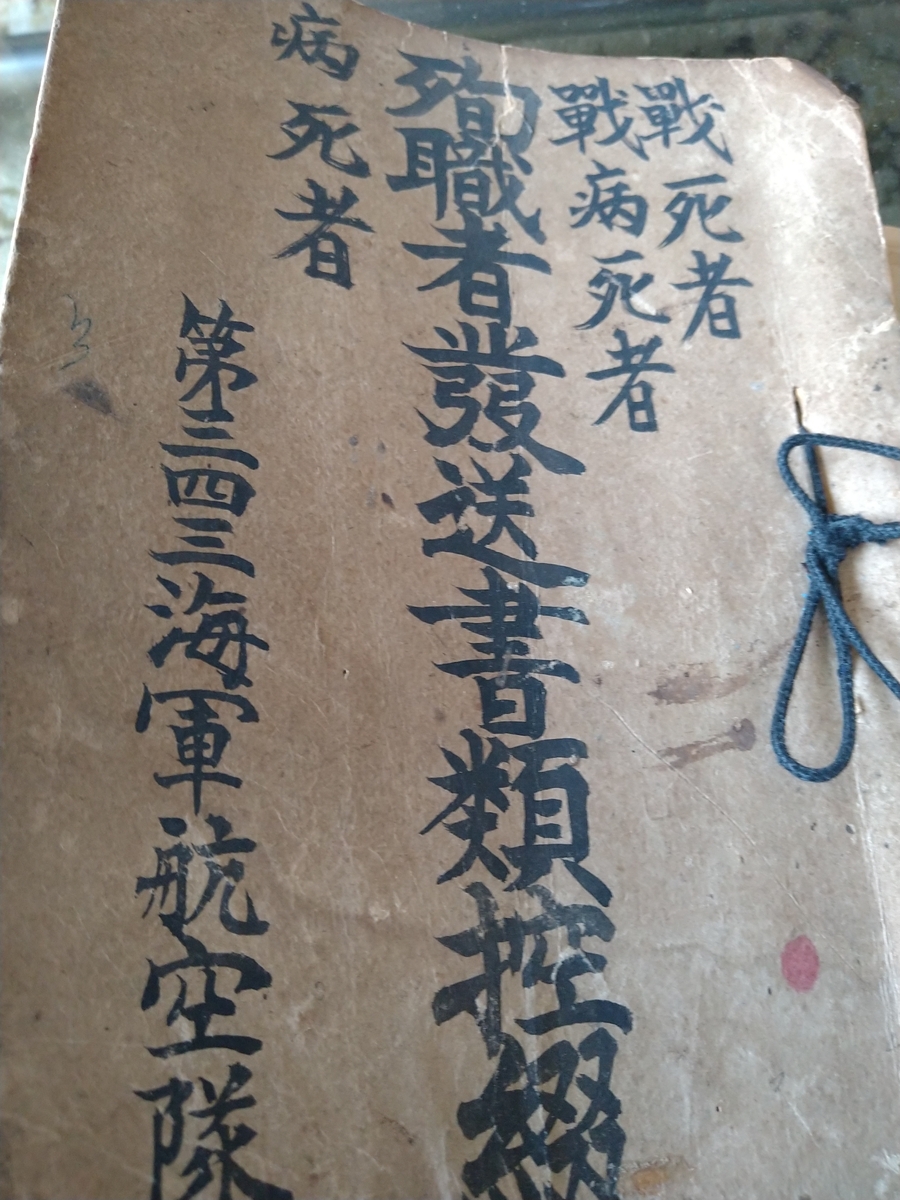 戰死者
戰病死者
殉職者發送書類控綴
病死者
第三四三海軍航空隊